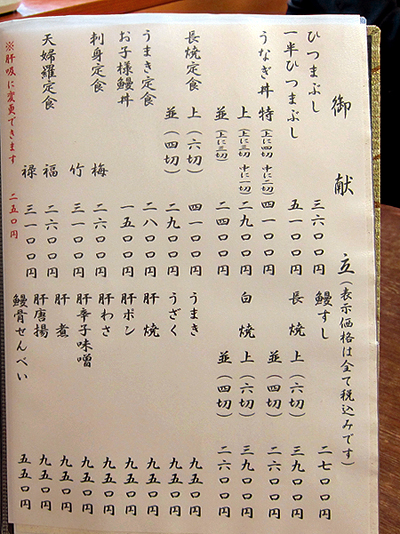 御献立(表示価格は全て税込みです)
ひつまぶし 三六〇〇円
一半ひつまぶし 五一〇〇円
うなぎ丼 特(上に四切 中に二切) 四一〇〇円
上(上に三切 中に一切) 二九〇〇円
並(上に三切) 二四〇〇円
長焼定食 上(六切) 四一〇〇円
並(四切) 二九〇〇円
うまき定食 二八〇〇円
お子様鰻丼 一五〇〇円
刺身定食 梅 二六〇〇円
竹 三一〇〇円
天婦羅定食 福 二六〇〇円
禄 三一〇〇円
※肝吸に変更できます 二五〇円
鰻すし 二七〇〇円
長焼 上(六切) 三九〇〇円
並(四切) 二六〇〇円
白焼 上(六切) 三九〇〇円
並(四切) 二六〇〇円
うまき 九五〇円
うざく 九五〇円
肝焼 九五〇円
肝ポン 九五〇円
肝わさ 九五〇円
肝辛子味噌 九五〇円
肝煮 九五〇円
肝唐揚 九五〇円
鰻骨せんべい 五五〇円